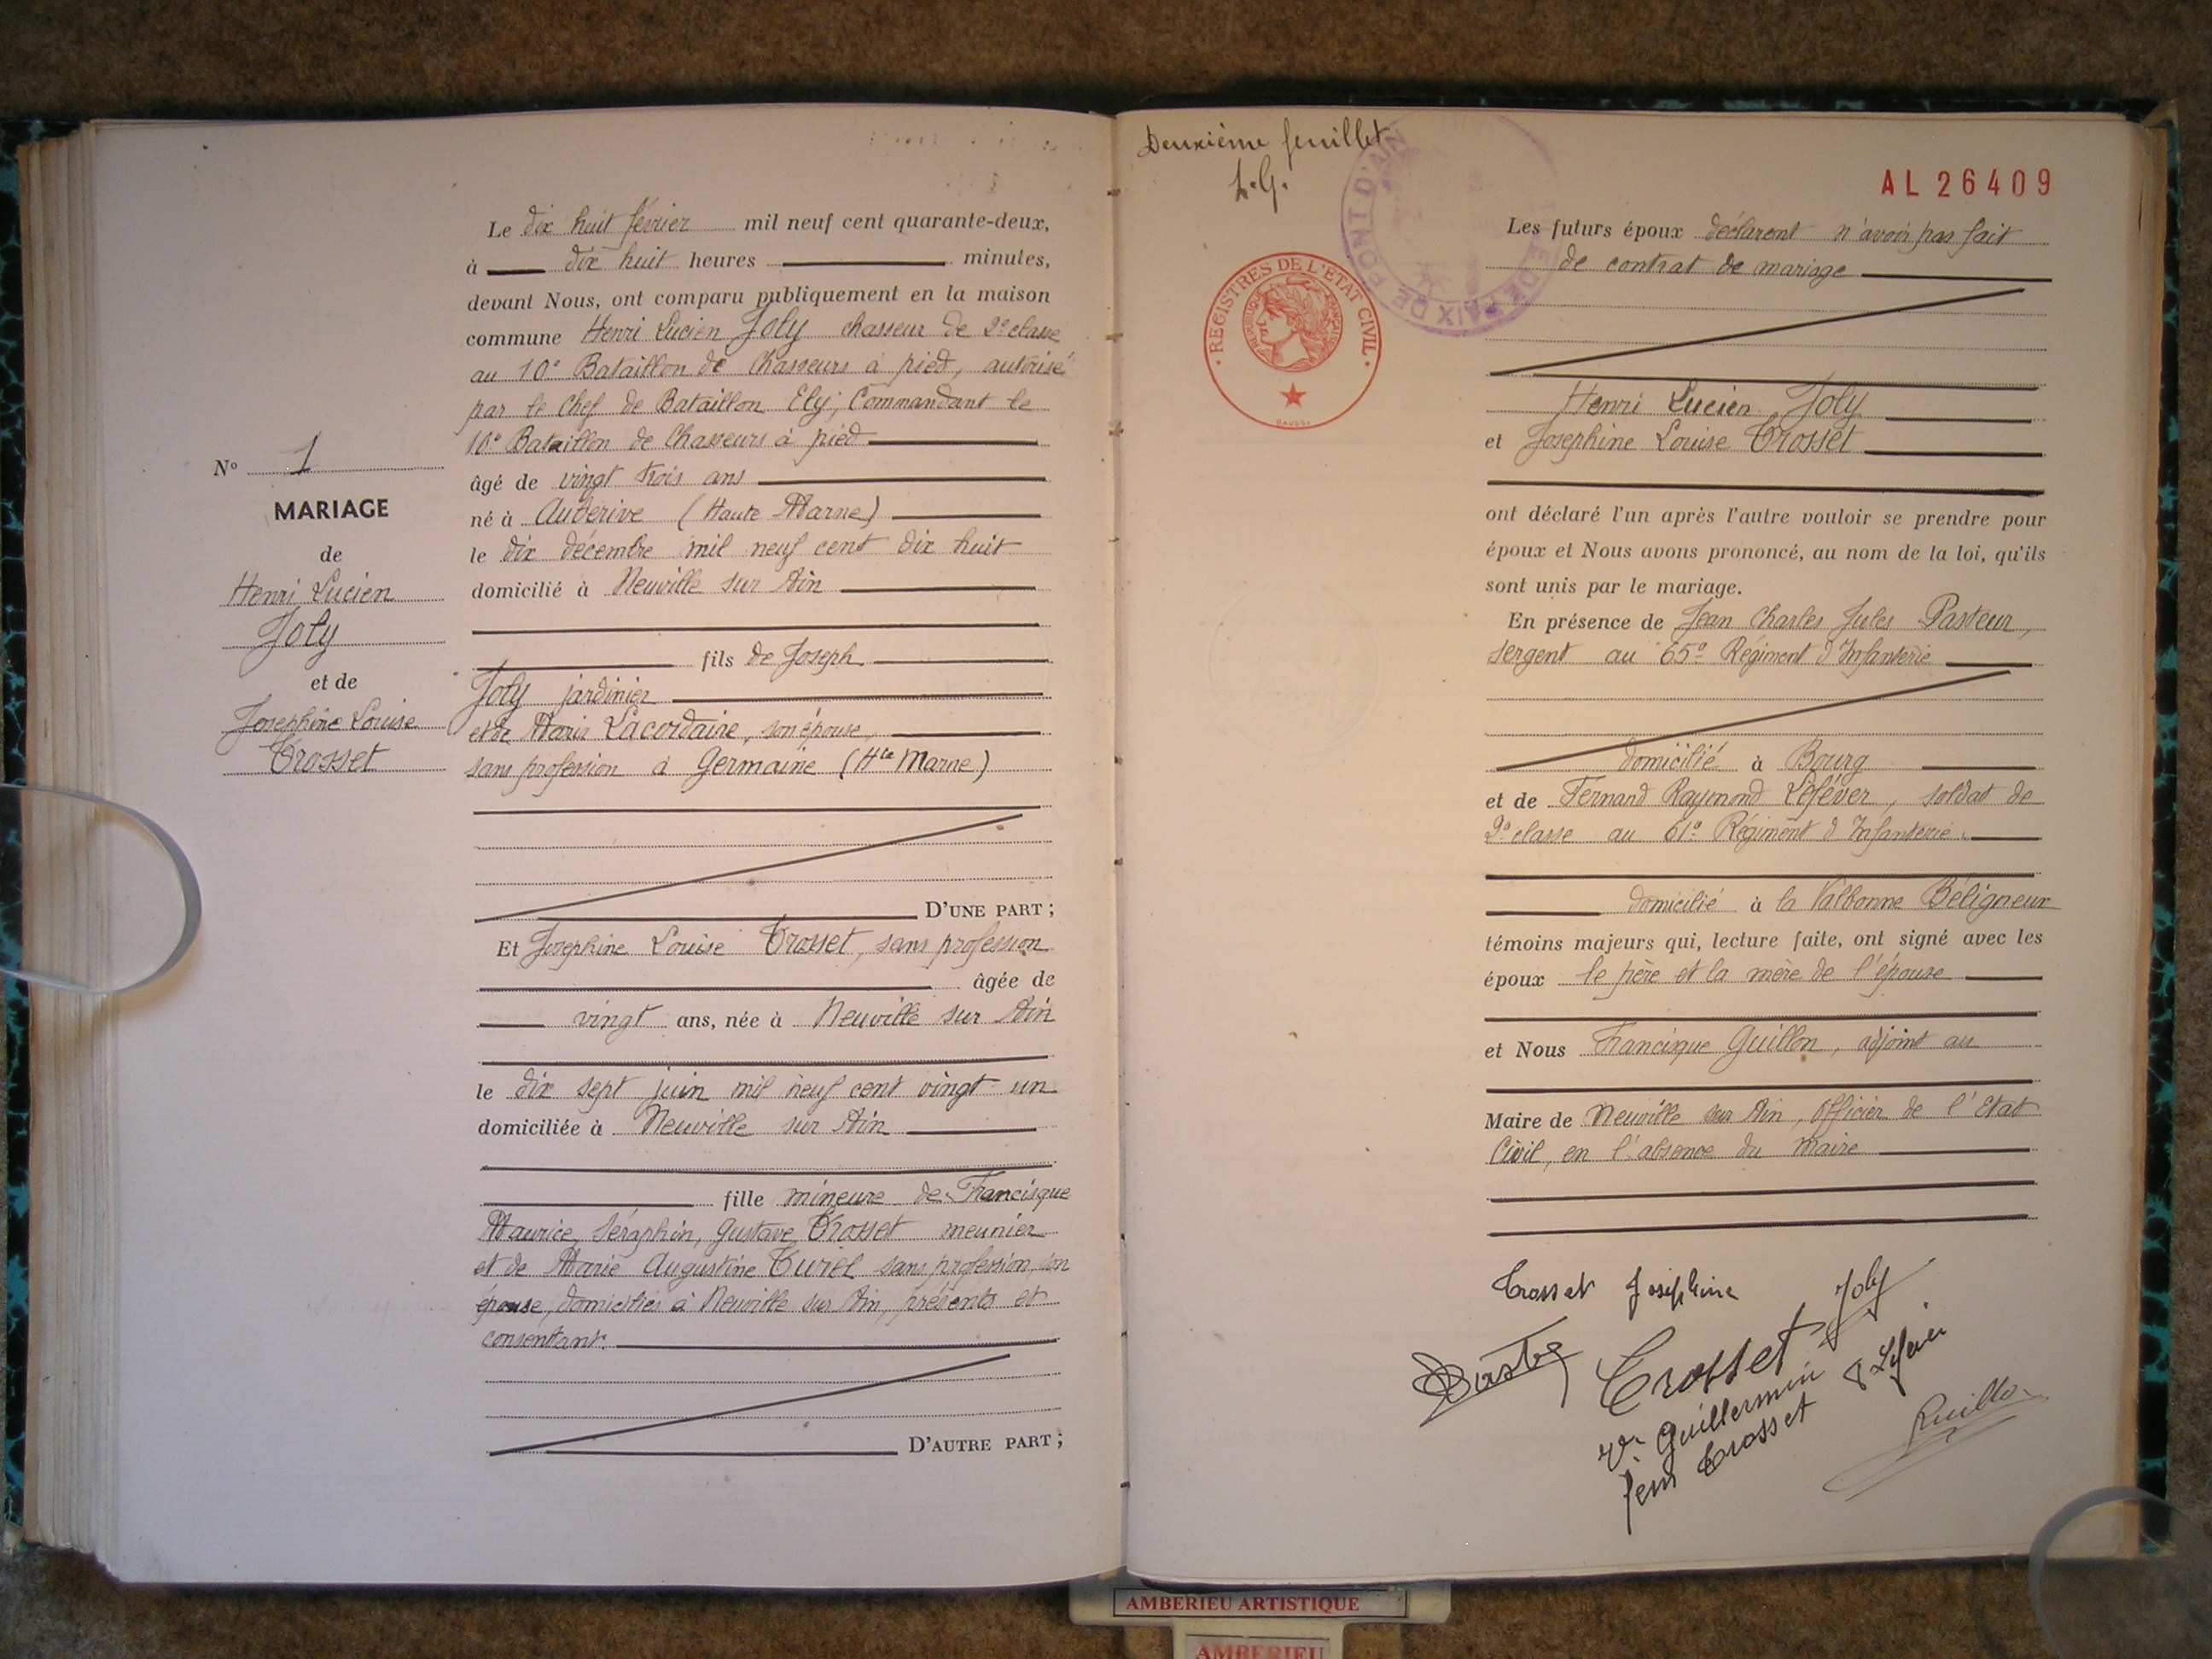 N° 1
MARIAGE
de
Henri Lucien
Joly
et de
Josephine Louise
Trosset
Le dix huit février mil neuf cent quarante-deux,
à dix huit heures minutes,
devant Nous, ont comparu publiquement en la maison
commune Henri Lucien Joly chasseur de 2e classe
au 10e Bataillon de Chasseurs à pied, autorisé
par le Chef de Bataillon Ely, Commandant le
10e Bataillon de Chasseurs à pied
âgé de vingt trois ans
né à Auberive (Haute Marne)
le dix décembre mil neuf cent dix huit
domicilié à Neuville sur Ain
fils de Joseph
Joly jardinier
et de Maria Lacordaire, son épouse,
sans profession à Germaine (Hte Marne)
D'UNE PART ;
Et Josephine Louise Trosset, sans profession
âgée de
vingt ans, née à Neuville sur Ain
le dix sept juin mil neuf cent vingt un
domiciliée à Neuville sur Ain
fille mineure de Francisque
Maurice, Séraphin, Gustave Trosset meunier
et de Marie Augustine Curel sans profession, son
épouse, domiciliés à Neuville sur Ain, présents et
consentant.
D'AUTRE PART ;
Deuxième feuillet
L.G.
DE PAIX DE PONT D'AIN
REGISTRES DE L'ETAT CIVIL
AL 26409
Les futurs époux déclarent n'avoir pas fait
de contrat de mariage
Henri Lucien Joly
et Josephine Louise Trosset
ont déclaré l'un après l'autre vouloir se prendre pour
époux et Nous avons prononcé, au nom de la loi, qu'ils
sont unis par le mariage.
En présence de Jean Charles Jules Pasteur,
sergent au 65e Régiment d'Infanterie
domicilié à Bourg
et de Fernand Raymond Lefèver, soldat de
2e classe au 61e Régiment d'Infanterie.
domicilié à la Valbonne Béligneux
témoins majeurs qui, lecture faite, ont signé avec les
époux le père et la mère de l'épouse
et Nous Francisque Guillon, adjoint au
Maire de Neuville sur Ain, Officier de l'Etat
Civil, en l'absence du Maire
Trosset Joséphine
Joly
Trosset
Guillermin
Trosset
AMBERIEU ARTISTIQUE
AMBERIEU